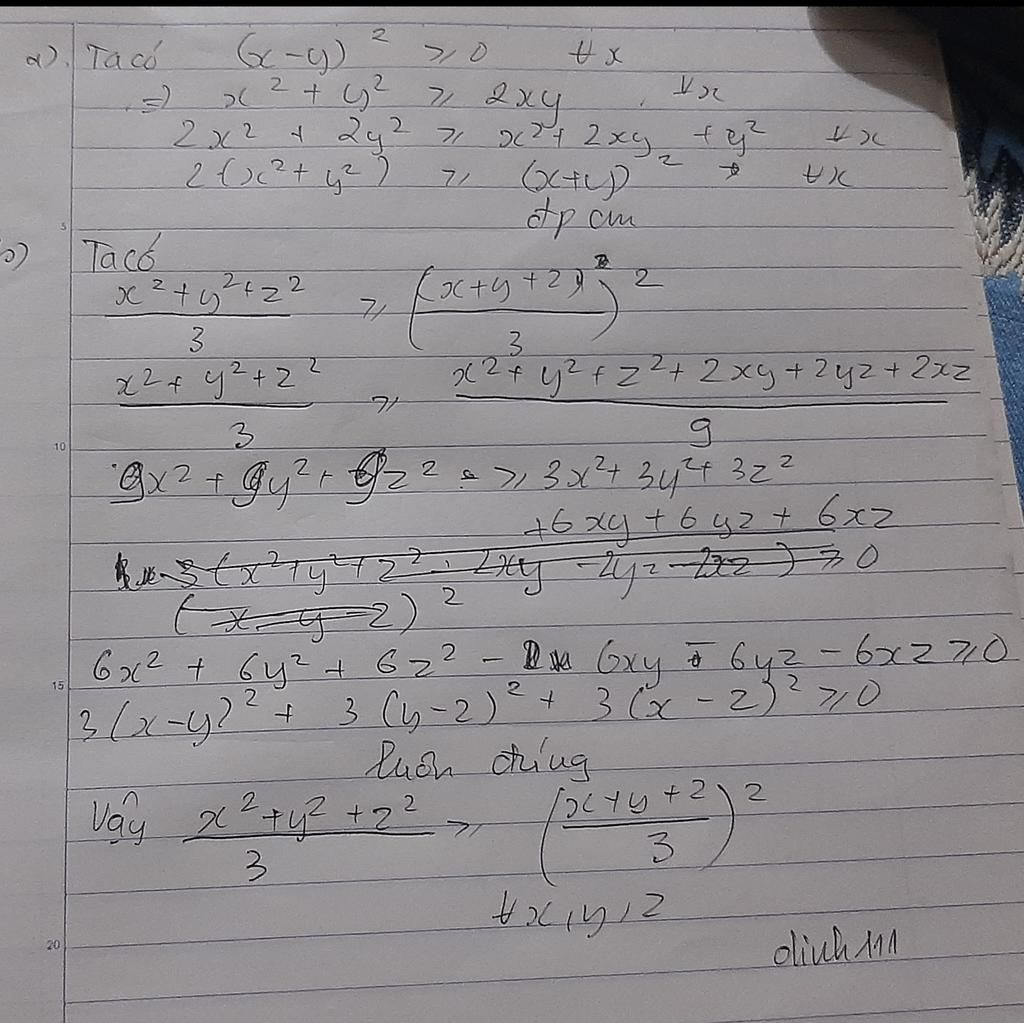 a). Ta có (x-y)² ≥ 0 ∀x
=> x² + y² ≥ 2xy, ∀x
2x² + 2y² ≥ x² + 2xy + y² ∀x
2(x² + y²) ≥ (x+y)² ∀x
đpcm
5
b) Ta có
(x² + y² + z²)/3 ≥ ((x+y+z)/3)²
(x² + y² + z²)/3 ≥ (x² + y² + z² + 2xy + 2yz + 2xz)/9
10
9x² + 9y² + 9z² ≥ 3x² + 3y² + 3z²
+6xy + 6yz + 6xz
3(x² + y² + z² - 2xy - 2yz - 2xz) ≥ 0
(x-y-z)²
6x² + 6y² + 6z² - 6xy - 6yz - 6xz ≥ 0
15
3(x-y)² + 3(y-z)² + 3(x-z)² ≥ 0
luôn đúng
Vậy (x² + y² + z²)/3 ≥ ((x+y+z)/3)²
∀x, y, z
20
dinh111